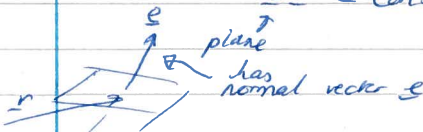 e
plane
has
normal vector e
r